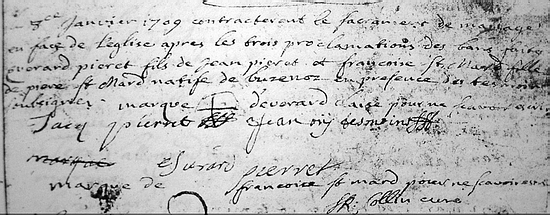 Janvier 1709 contracterent le sacrement de mariage
en face de leglise apres les trois proclamations des bans faites
everard pieret fils de Jean pieret et francoise St Mard fille
de piere St Mard natife de buzenoz en presence des temoins
marque d'everard pour ne scavoir
Jacq pierret Jean
marque everard pierret
marque de francoise st mard pour ne scavoir
Collin cure